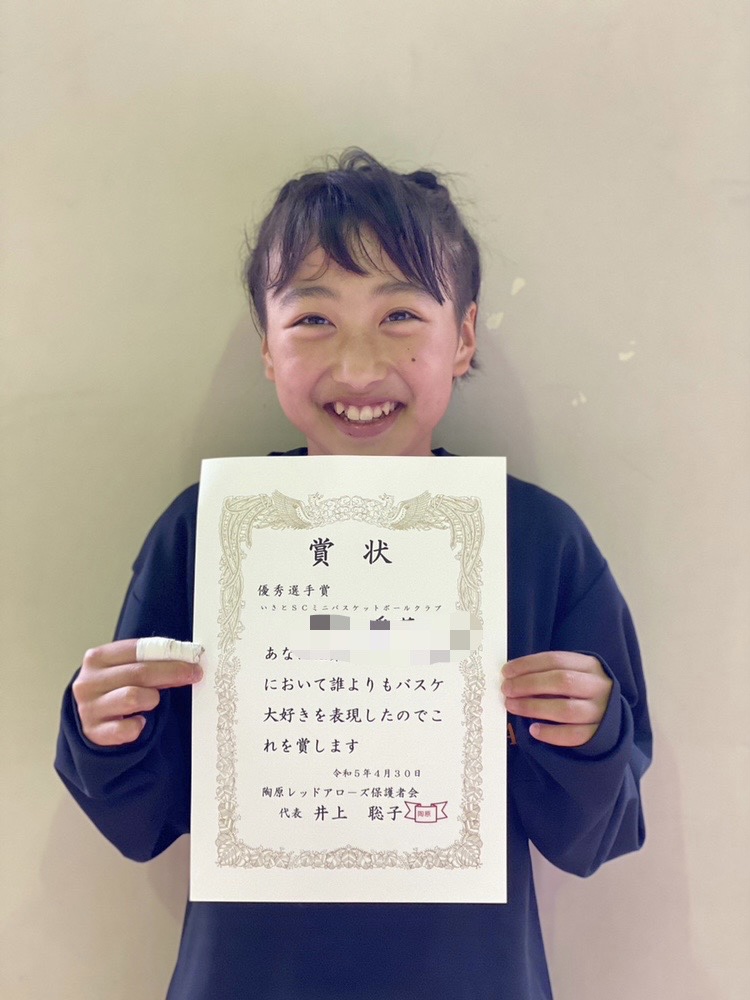 賞 状
優秀選手賞
いさとSCミニバスケットボールクラブ
あな
において誰よりもバスケ
大好きを表現したのでこ
れを賞します
令和5年4月30日
陶原レッドアローズ保護者会
代表 井上 聡子 陶原